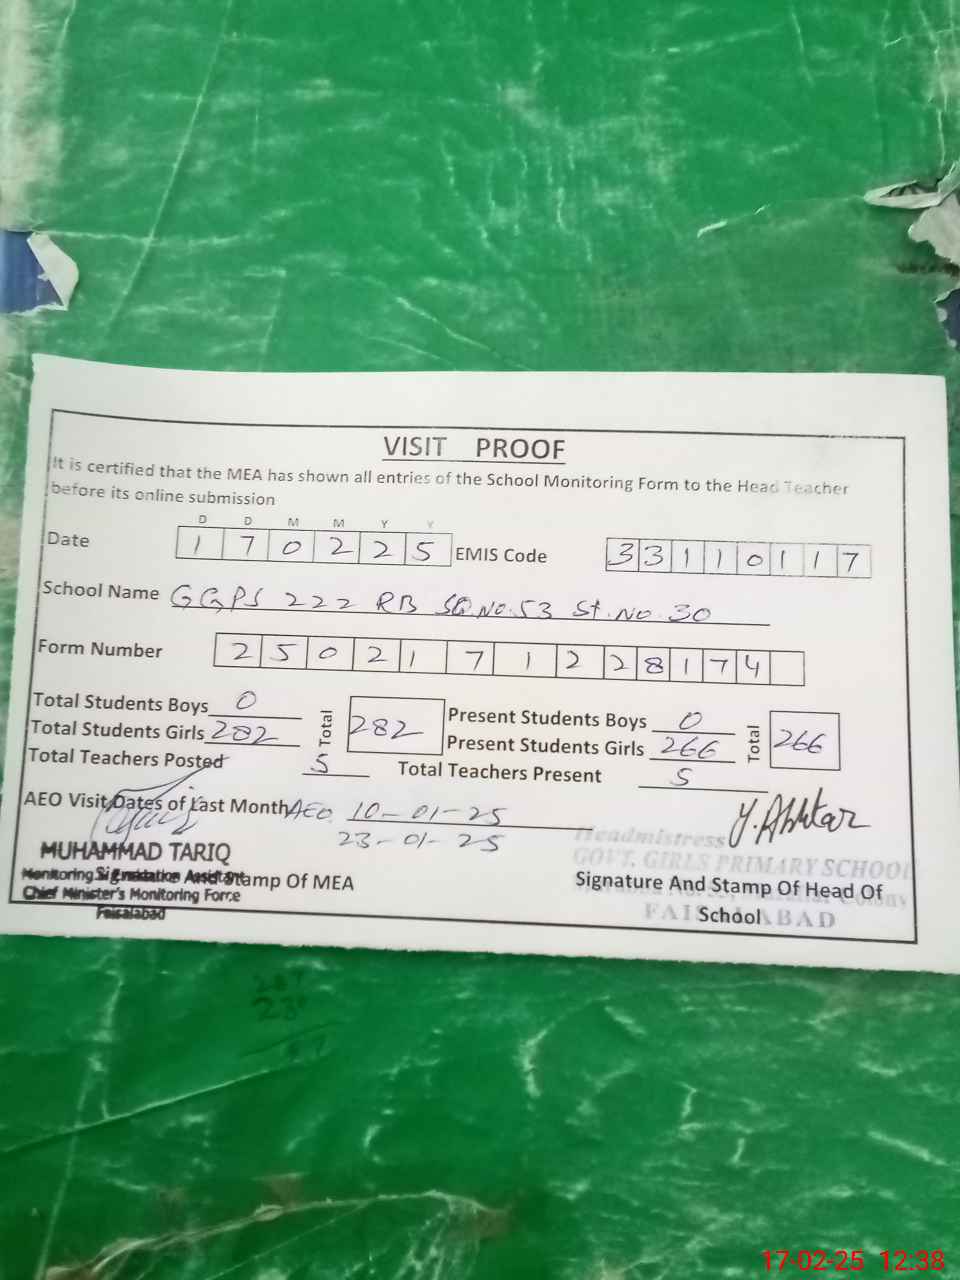 VISIT PROOF
It is certified that the MEA has shown all entries of the School Monitoring Form to the Head Teacher
before its online submission
D D M M Y Y
Date 1 7 0 2 2 5 EMIS Code 3 3 1 1 0 1 1 7
School Name GGPS 222 RB SQ.No.53 St.No.30
Form Number 2 5 0 2 1 7 1 2 2 8 1 7 4
Total Students Boys 0 Total 282 Present Students Boys 0 Total 266
Total Students Girls 282 Present Students Girls 266
Total Teachers Posted 5 Total Teachers Present 5
AEO Visit Dates of Last Month AEO 10-01-25 Y.Akhtar
23-01-25
Headmistress
MUHAMMAD TARIQ GOVT. GIRLS PRIMARY SCHOOL
Monitoring Assistant And Stamp Of MEA Signature And Stamp Of Head Of
Chief Minister's Monitoring Force Colony
Faisalabad School FAISALABAD
17-02-25 12:38